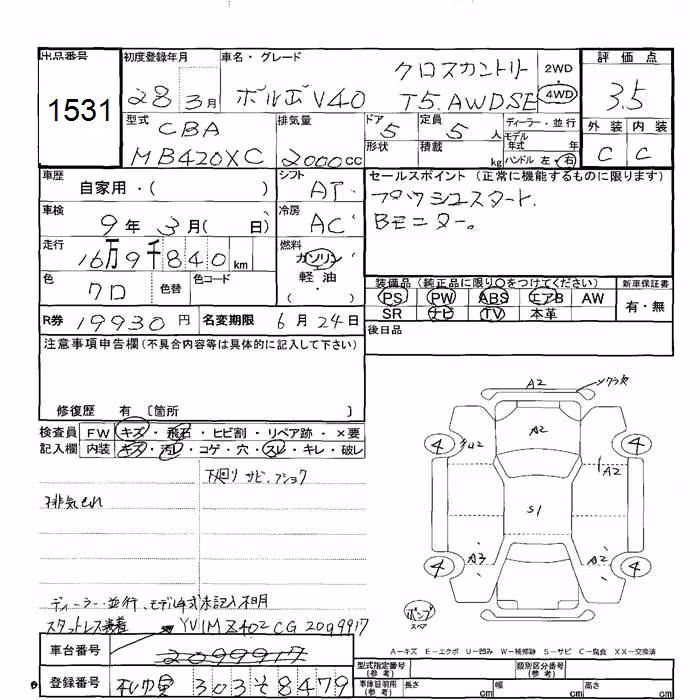 出品番号
1531
初度登録年月
28 3月
車名・グレード
ボルボV40 クロスカントリー
T5.AWDSE
2WD
4WD
評価点
3.5
外装 内装
C C
型式
CBA
MB420XC
排気量
2000cc
ドア 5
形状
定員 5 人
積載 kg
ディーラー・並行
モデル年式 年
ハンドル 左・右
車歴
自家用・( )
車検
9年 3月( 日)
走行
16万9千840km
色 クロ 色替
色コード
シフト AT
冷房 AC
燃料
ガソリン・
軽油
( )
セールスポイント(正常に機能するものに限ります)
プッシュスタート.
Bモニター。
装備品(純正品に限り○をつけてください)
PS PW ABS エアB AW
SR ナビ TV 本革
新車保証書
有・無
後日品
R券 19930円 名変期限 6月24日
注意事項申告欄(不具合内容等は具体的に記入して下さい)
修復歴 有〔箇所 〕
検査員 FW キズ・飛石・ヒビ割・リペア跡・×要
記入欄 内装 キズ・汚レ・コゲ・穴・スレ・キレ・破レ
下廻りサビ、フショク
排気もれ
ディーラー・並行、モデル年式未記入不明
スタットレス装着 YV1MZ402CG2099917
車台番号 2099917
登録番号 303そ8479
A2
A2
4 4
A2
S1
A3 A2
4 4
スペア
A-キズ E-エクボ U-凹み W-補修跡 S-サビ C-腐食 XX-交換済
型式指定番号(参考)
類別区分番号(参考)
車庫証明用(参考) 長さ cm 幅 cm 高さ cm